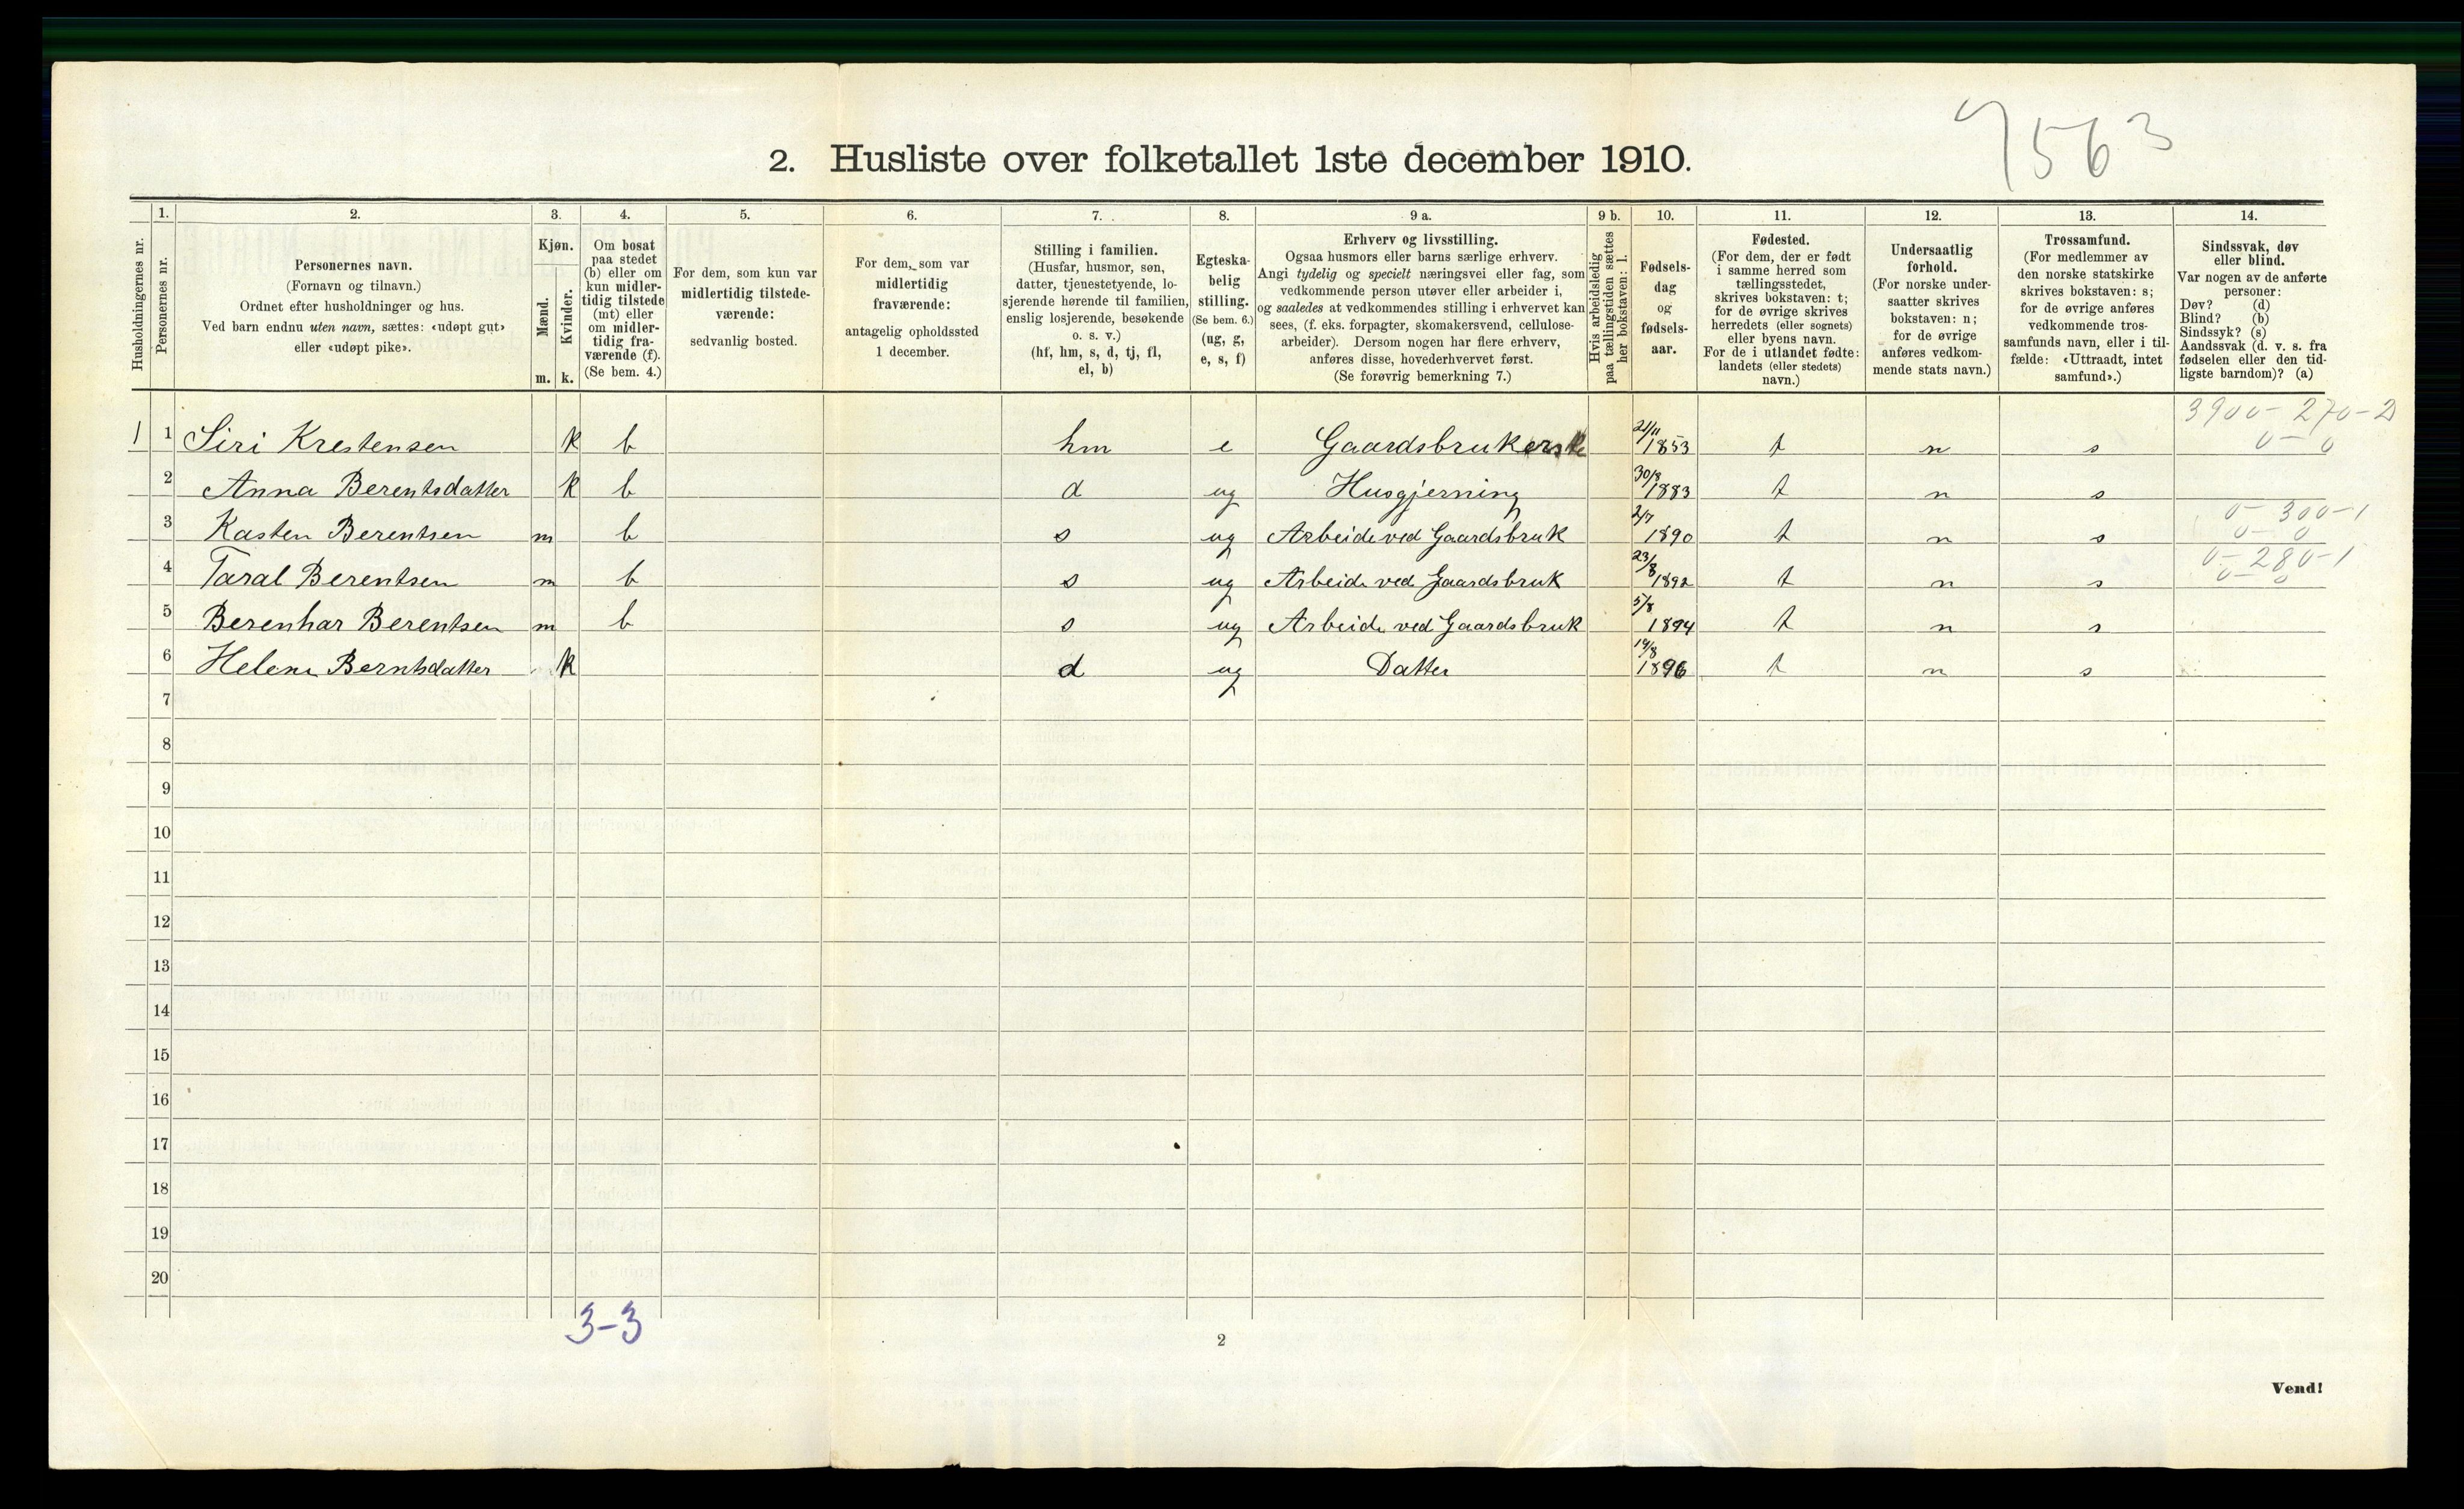 7563
2. Husliste over folketallet 1ste december 1910.
Husholdningernes nr.
1.
Personernes nr.
2.
Personernes navn.
(Fornavn og tilnavn.)
Ordnet efter husholdninger og hus.
Ved barn endnu uten navn, sættes: «udøpt gut»
eller «udøpt pike».
3.
Kjøn.
Mænd.
Kvinder.
m. k.
4.
Om bosat
paa stedet
(b) eller om
kun midler-
tidig tilstede
(mt) eller
om midler-
tidig fra-
værende (f).
(Se bem. 4.)
5.
For dem, som kun var
midlertidig tilstede-
værende:
sedvanlig bosted.
6.
For dem, som var
midlertidig
fraværende:
antagelig opholdssted
1 december.
7.
Stilling i familien.
(Husfar, husmor, søn,
datter, tjenestetyende, lo-
sjerende hørende til familien,
enslig losjerende, besøkende
o. s. v.)
(hf, hm, s, d, tj, fl,
el, b)
8.
Egteska-
belig
stilling.
(Se bem. 6.)
(ug, g,
e, s, f)
9 a.
Erhverv og livsstilling.
Ogsaa husmors eller barns særlige erhverv.
Angi tydelig og specielt næringsvei eller fag, som
vedkommende person utøver eller arbeider i,
og saaledes at vedkommendes stilling i erhvervet kan
sees, (f. eks. forpagter, skomakersvend, cellulose-
arbeider). Dersom nogen har flere erhverv,
anføres disse, hovederhvervet først.
(Se forøvrig bemerkning 7.)
9 b.
Hvis arbeidsledig
paa tællingstiden sættes
her bokstaven: l.
10.
Fødsels-
dag
og
fødsels-
aar.
11.
Fødested.
(For dem, der er født
i samme herred som
tællingsstedet,
skrives bokstaven: t;
for de øvrige skrives
herredets (eller sognets)
eller byens navn.
For de i utlandet fødte:
landets (eller stedets)
navn.)
12.
Undersaatlig
forhold.
(For norske under-
saatter skrives
bokstaven: n;
for de øvrige
anføres vedkom-
mende stats navn.)
13.
Trossamfund.
(For medlemmer av
den norske statskirke
skrives bokstaven: s;
for de øvrige anføres
vedkommende tros-
samfunds navn, eller i til-
fælde: «Uttraadt, intet
samfund».)
14.
Sindssvak, døv
eller blind.
Var nogen av de anførte
personer:
Døv? (d)
Blind? (b)
Sindssyk? (s)
Aandssvak (d. v. s. fra
fødselen eller den tid-
ligste barndom)? (a)
3900-270-2
0-0
1 1 Siri Krestensen k b hm e Gaardsbrukerske 21/11 1853 t n s
2 Anna Berentsdatter k b d ug Husgjerning 30/8 1883 t n s
0-300-1
0-0
3 Kasten Berentsen m b s ug Arbeide ved Gaardsbruk 2/7 1890 t n s
0-280-1
0-0
4 Taral Berentsen m b s ug Arbeide ved Gaardsbruk 23/8 1892 t n s
5 Berenhar Berentsen m b s ug Arbeide ved Gaardsbruk 5/8 1894 t n s
6 Helene Berntsdatter k d ug Datter 19/8 1896 t n s
7
8
9
10
11
12
13
14
15
16
17
18
19
20
3-3
2
Vend!